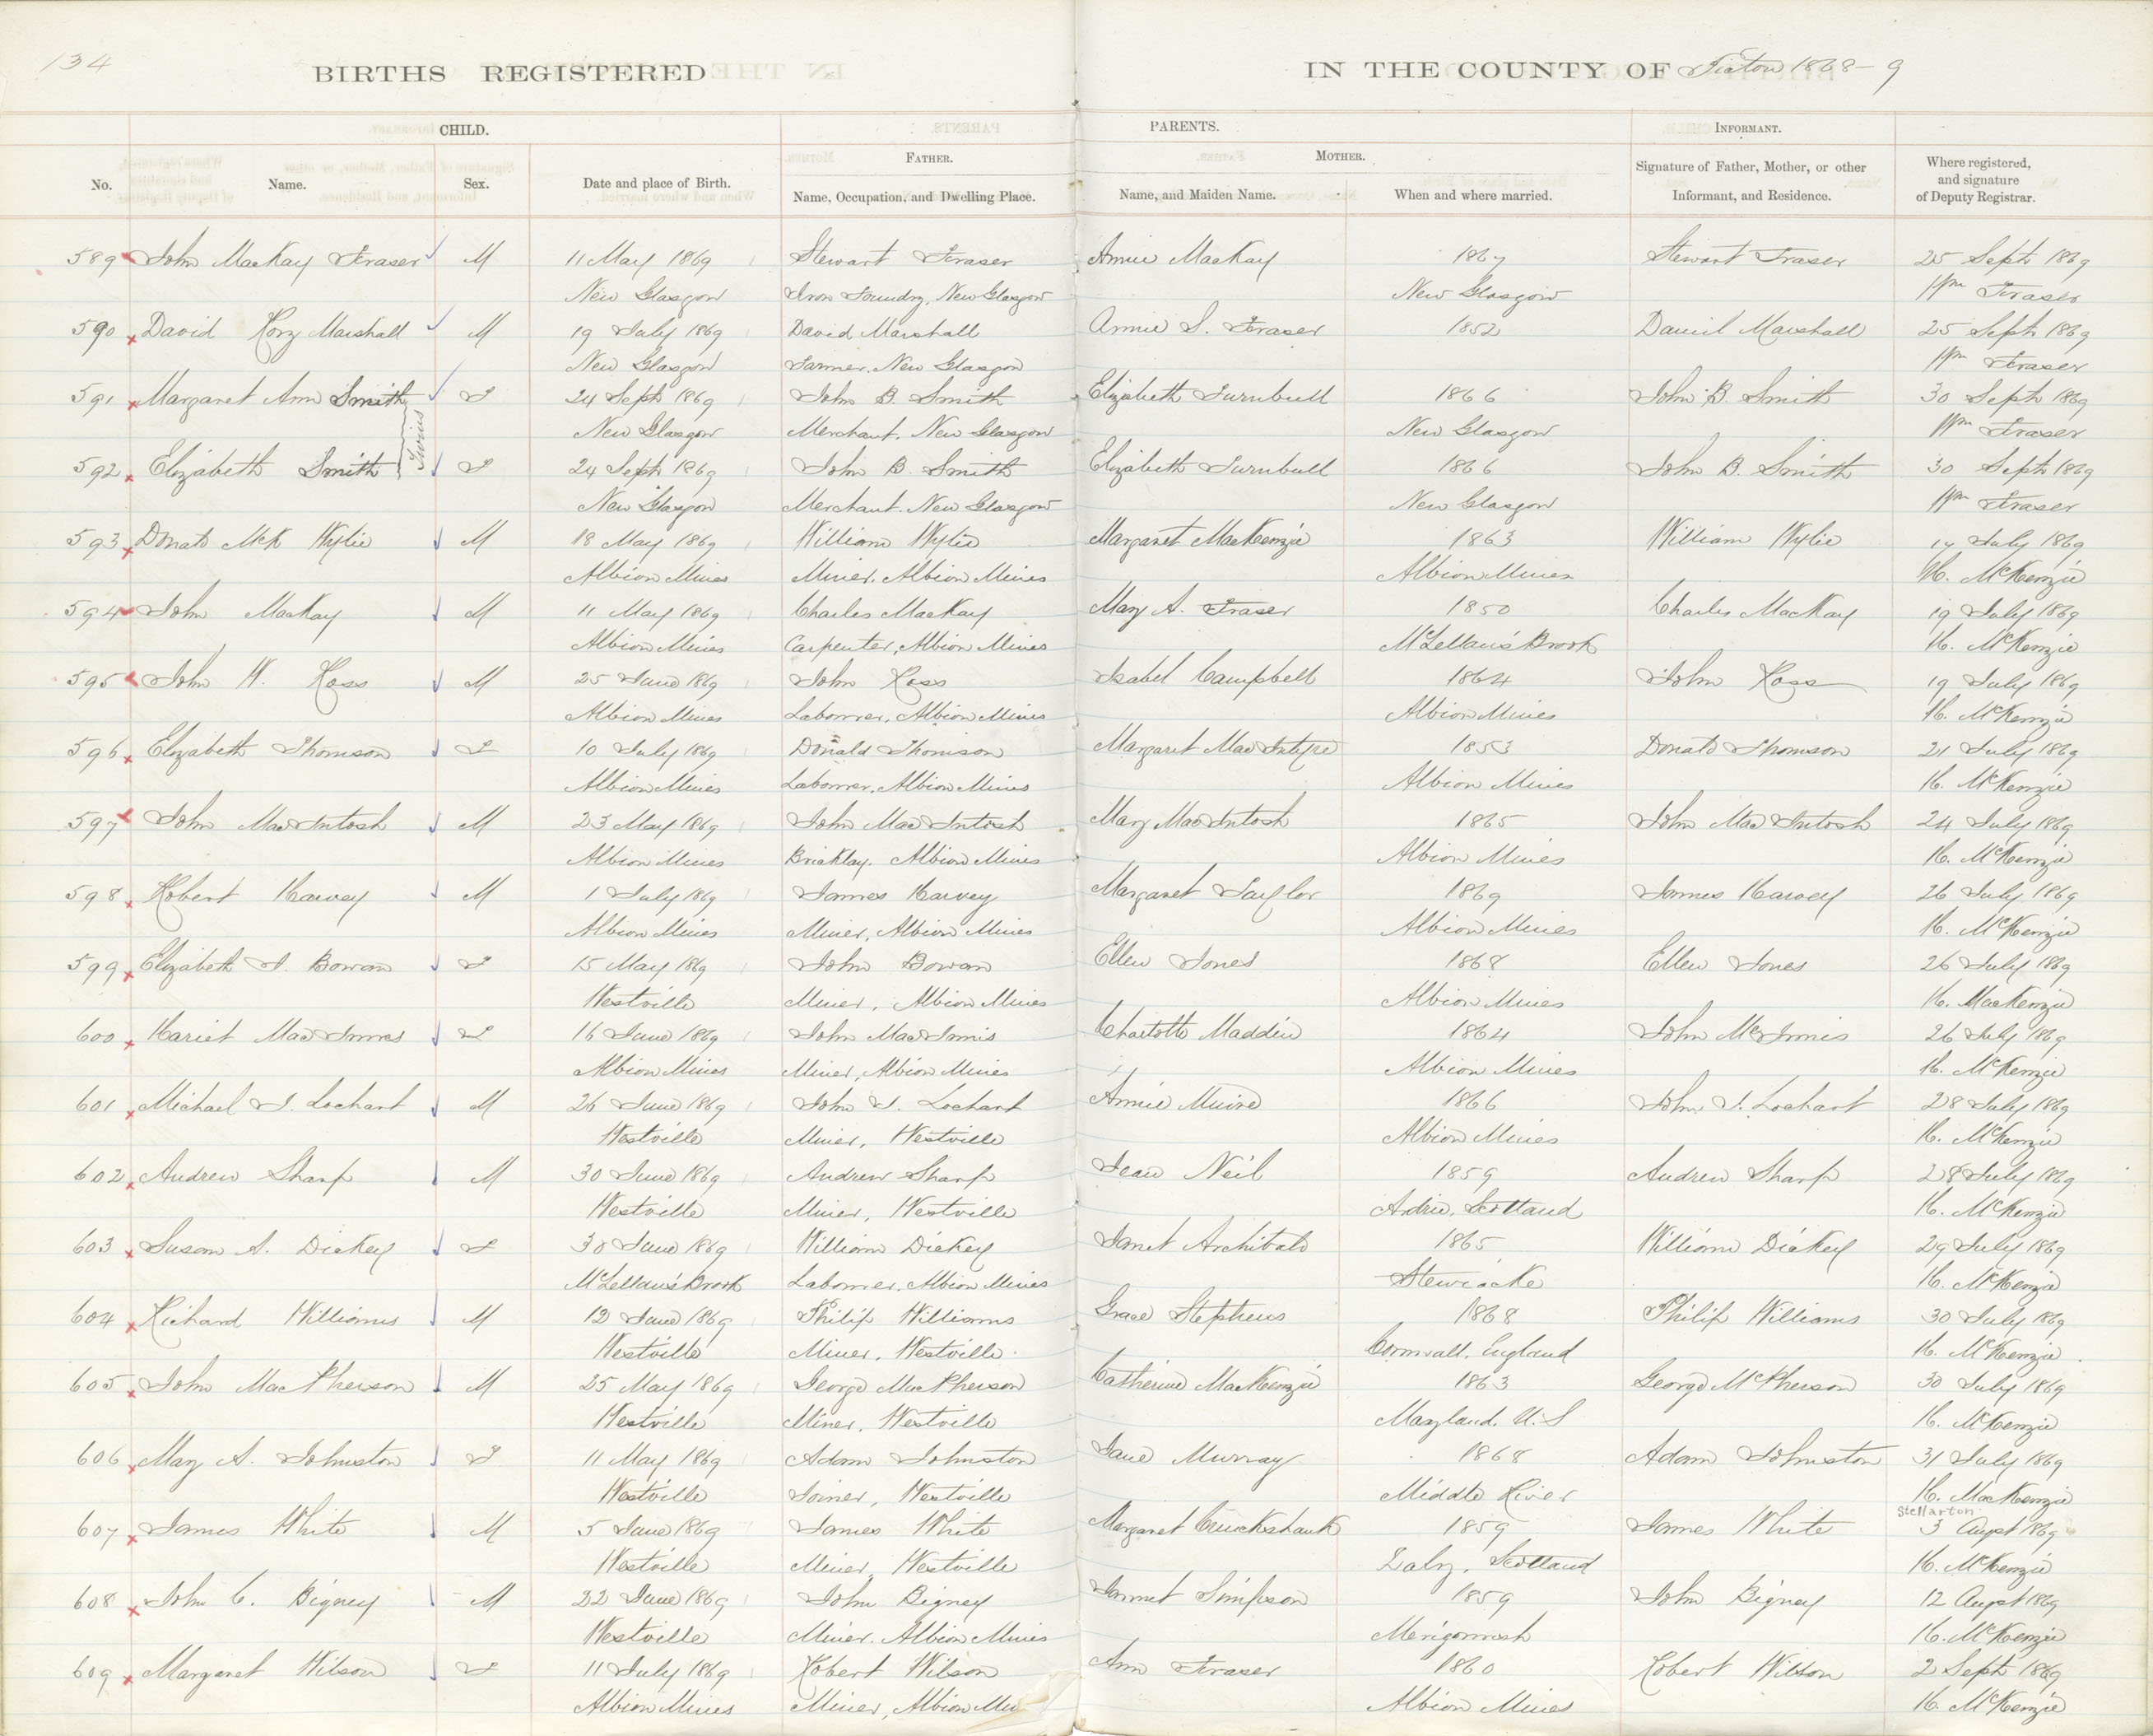 134
BIRTHS REGISTERED IN THE COUNTY OF Pictou 1868-9
CHILD. PARENTS. INFORMANT.
FATHER. MOTHER.
No. Name. Sex. Date and place of Birth. Name, Occupation, and Dwelling Place. Name, and Maiden Name. When and where married. Signature of Father, Mother, or other Informant, and Residence. Where registered, and signature of Deputy Registrar.
589 John MacKay Fraser M 11 May 1869 Stewart Fraser Annie MacKay 1867 Stewart Fraser 25 Sept 1869
New Glasgow Iron Foundry, New Glasgow New Glasgow Wm Fraser
590 David Marshall M 19 July 1869 David Marshall Annie S. Fraser 1852 Daniel Marshall 25 Sept 1869
New Glasgow Farmer, New Glasgow Wm Fraser
591 Margaret Ann Smith F 24 Sept 1869 John B. Smith Elizabeth Turnbull 1866 John B. Smith 30 Sept 1869
Twins
New Glasgow Merchant, New Glasgow New Glasgow Wm Fraser
592 Elizabeth Smith F 24 Sept 1869 John B. Smith Elizabeth Turnbull 1866 John B. Smith 30 Sept 1869
New Glasgow Merchant, New Glasgow New Glasgow Wm Fraser
593 Donald McK Wylie M 18 May 1869 William Wylie Margaret MacKenzie 1863 William Wylie 17 July 1869
Albion Mines Miner, Albion Mines Albion Mines H. McKenzie
594 John MacKay M 11 May 1869 Charles MacKay Mary A. Fraser 1850 Charles MacKay 19 July 1869
Albion Mines Carpenter, Albion Mines McLellan's Brook H. McKenzie
595 John W. Ross M 25 June 1869 John Ross Isabel Campbell 1864 John Ross 19 July 1869
Albion Mines Laborer, Albion Mines Albion Mines H. McKenzie
596 Elizabeth Thomson F 10 July 1869 Donald Thomson Margaret MacIntyre 1853 Donald Thomson 21 July 1869
Albion Mines Laborer, Albion Mines Albion Mines H. McKenzie
597 John MacIntosh M 23 May 1869 John MacIntosh Mary MacIntosh 1865 John MacIntosh 24 July 1869
Albion Mines Bricklay. Albion Mines Albion Mines H. McKenzie
598 Robert Harvey M 1 July 1869 James Harvey Margaret Taylor 1869 James Harvey 26 July 1869
Albion Mines Miner, Albion Mines Albion Mines H. McKenzie
599 Elizabeth J. Bowan F 15 May 1869 John Bowan Ellen Jones 1868 Ellen Jones 26 July 1869
Westville Miner, Albion Mines Albion Mines H. MacKenzie
600 Hariet MacInnes F 16 June 1869 John MacInnis Charlotte Maddin 1864 John McInnis 26 July 1869
Albion Mines Miner, Albion Mines Albion Mines H. McKenzie
601 Michael J. Lochart M 26 June 1869 John J. Lochart Annie Muire 1866 John J. Lochart 28 July 1869
Westville Miner, Westville Albion Mines H. McKenzie
602 Andrew Sharp M 30 June 1869 Andrew Sharp Jean Neil 1859 Andrew Sharp 28 July 1869
Westville Miner, Westville Ardrie, Scotland H. McKenzie
603 Susan A. Dickey F 30 June 1869 William Dickey Janet Archibald 1865 William Dickey 29 July 1869
McLellan's Brook Laborer, Albion Mines Stewiacke H. McKenzie
604 Richard Williams M 12 June 1869 Philip Williams Grace Stephens 1868 Philip Williams 30 July 1869
Westville Miner, Westville Cornwall, England H. McKenzie
605 John MacPherson M 25 May 1869 George MacPherson Catherine MacKenzie 1863 George McPherson 30 July 1869
Westville Miner, Westville Maryland, U.S H. McKenzie
606 Mary A. Johnston F 11 May 1869 Adam Johnston Jane Murray 1868 Adam Johnston 31 July 1869
Westville Joiner, Westville Middle River H. MacKenzie
Stellarton
607 James White M 5 June 1869 James White Margaret Cruickshank 1859 James White 3 Augst 1869
Westville Miner, Westville Scotland H. McKenzie
608 John C. Bigney M 22 June 1869 John Bigney Simpson 1859 John Bigney 12 Augst 1869
Westville Miner, Albion Mines Merigomish H. McKenzie
609 Margaret Wilson F 11 July 1869 Robert Wilson Ann Fraser 1860 Robert Wilson 2 Sept 1869
Albion Mines Miner, Albion Albion Mines H. McKenzie